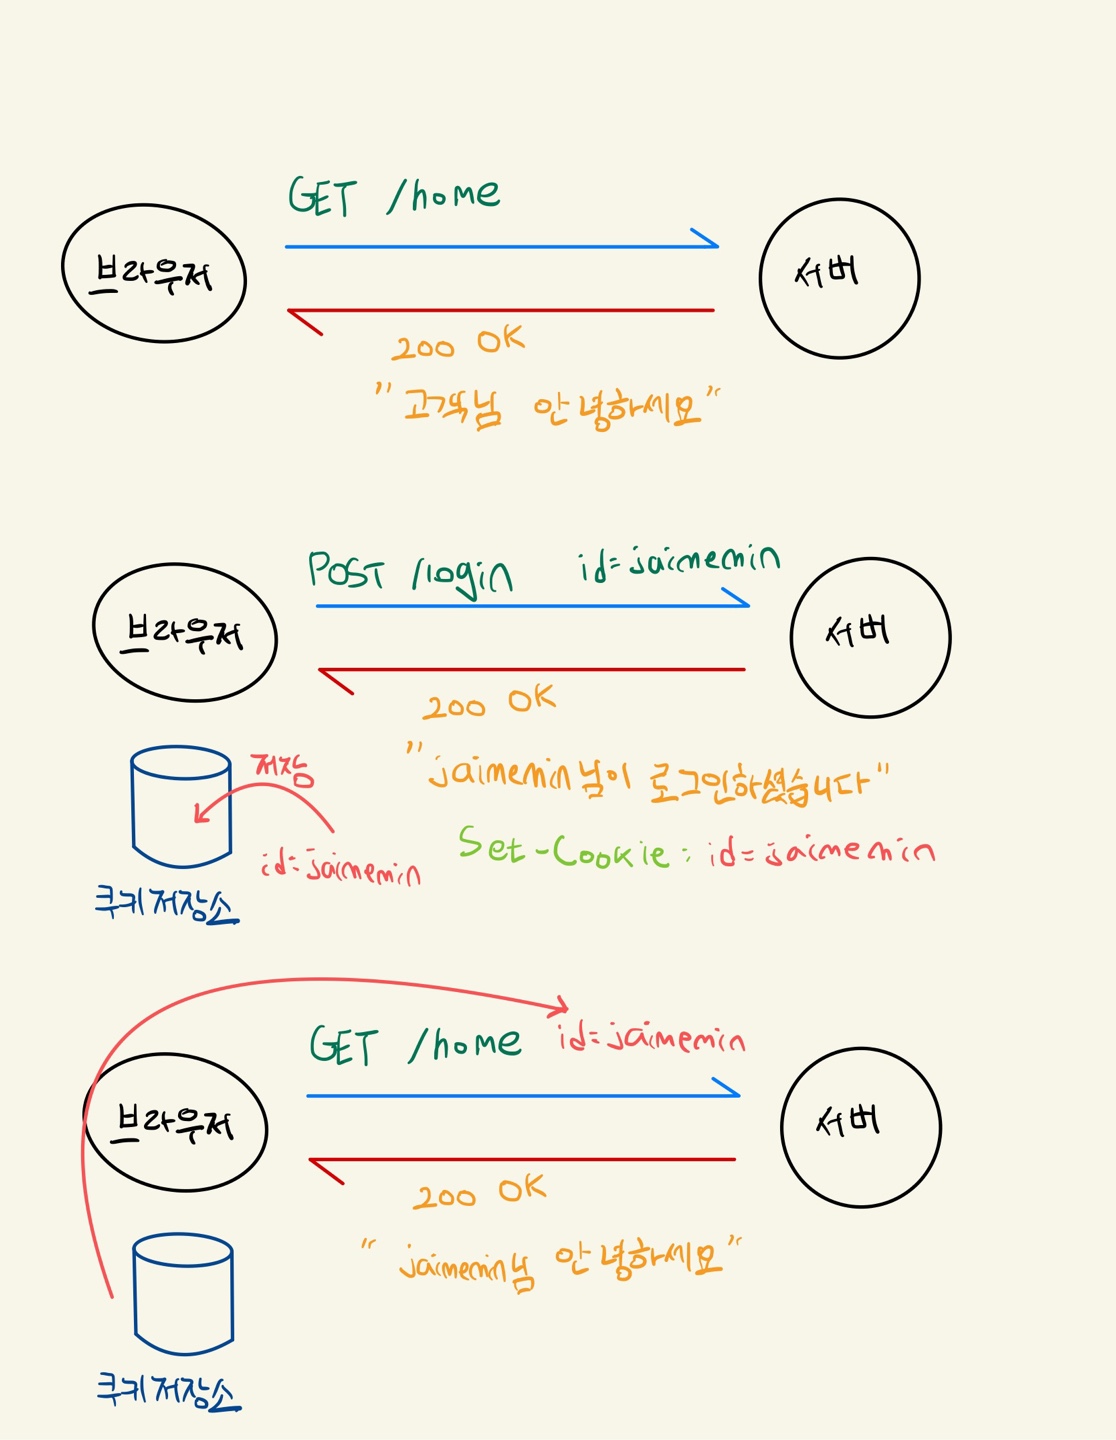 GET /home
브라우저
서버
200 OK
"고객님 안녕하세요"
POST /login id=jaimemin
브라우저
서버
200 OK
"jaimemin님이 로그인하셨습니다"
저장
Set-Cookie: id=jaimemin
id=jaimemin
쿠키저장소
GET /home id=jaimemin
브라우저
서버
200 OK
"jaimemin님 안녕하세요"
쿠키저장소